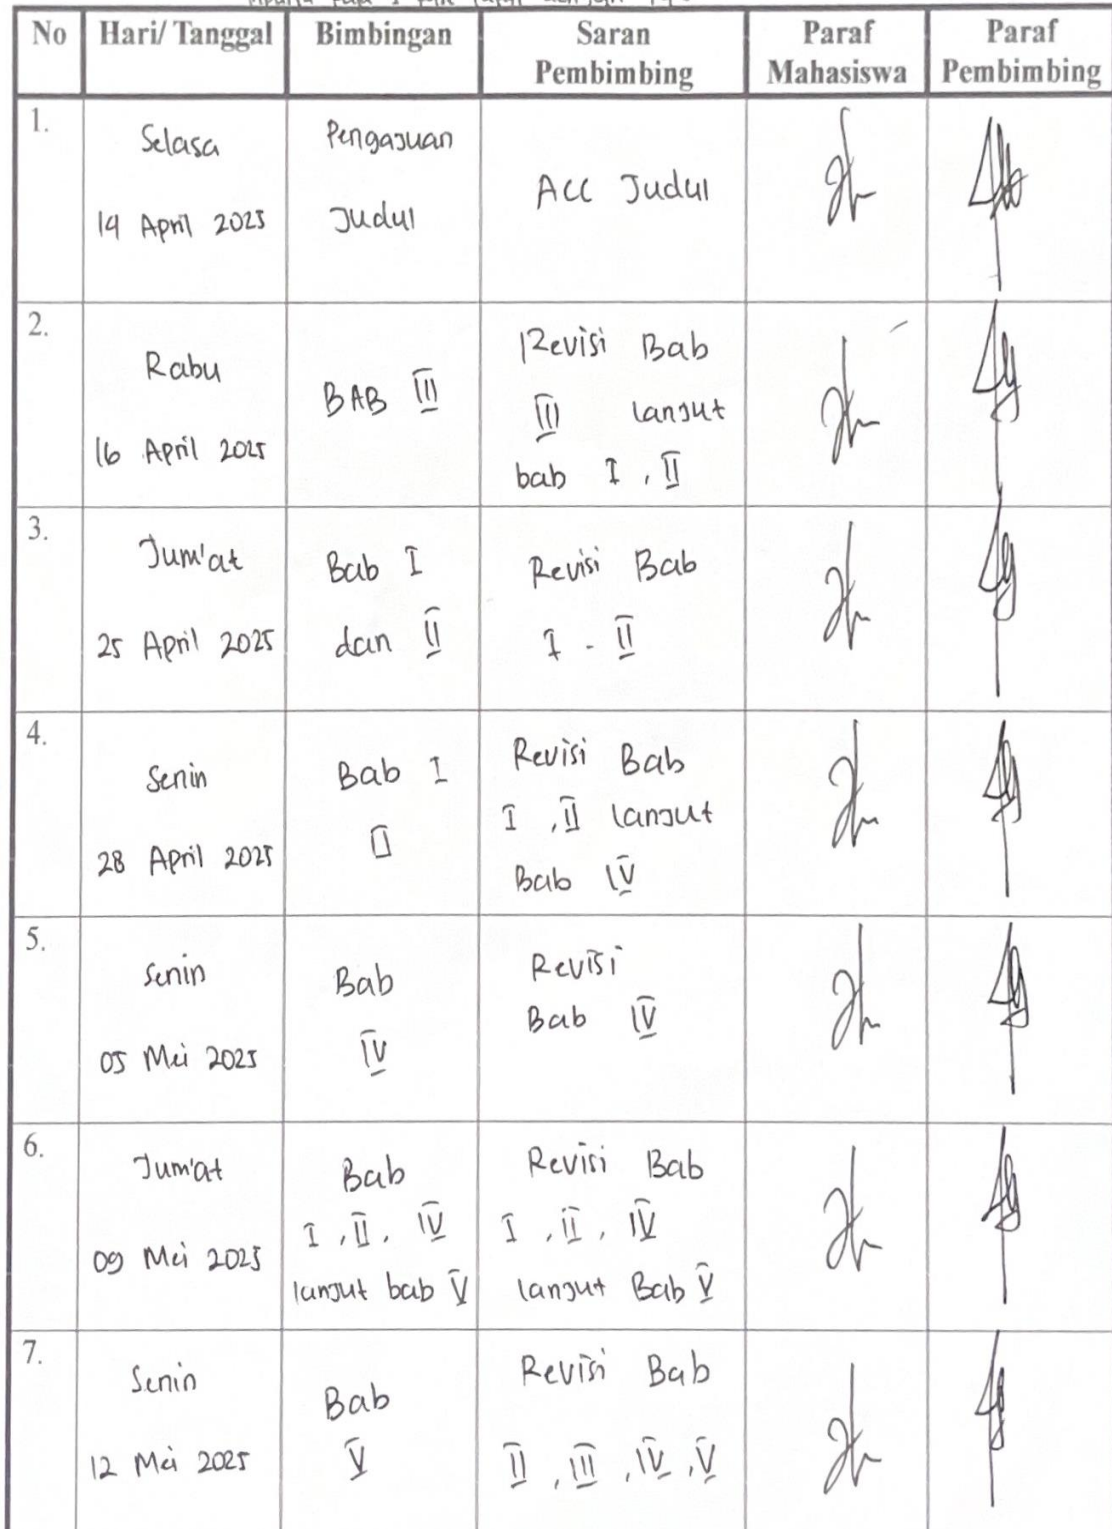 No Hari/ Tanggal Bimbingan Saran Pembimbing Paraf Mahasiswa Paraf Pembimbing
1. Selasa 14 April 2025 Pengajuan Judul ACC Judul
2. Rabu 16 April 2025 BAB III Revisi Bab III lanjut bab I , II
3. Jum'at 25 April 2025 Bab I dan II Revisi Bab I - II
4. Senin 28 April 2025 Bab I II Revisi Bab I , II lanjut Bab IV
5. Senin 05 Mei 2025 Bab IV Revisi Bab IV
6. Jum'at 09 Mei 2025 Bab I , II , IV lanjut bab V Revisi Bab I , II , IV lanjut Bab V
7. Senin 12 Mei 2025 Bab V Revisi Bab II , III , IV , V